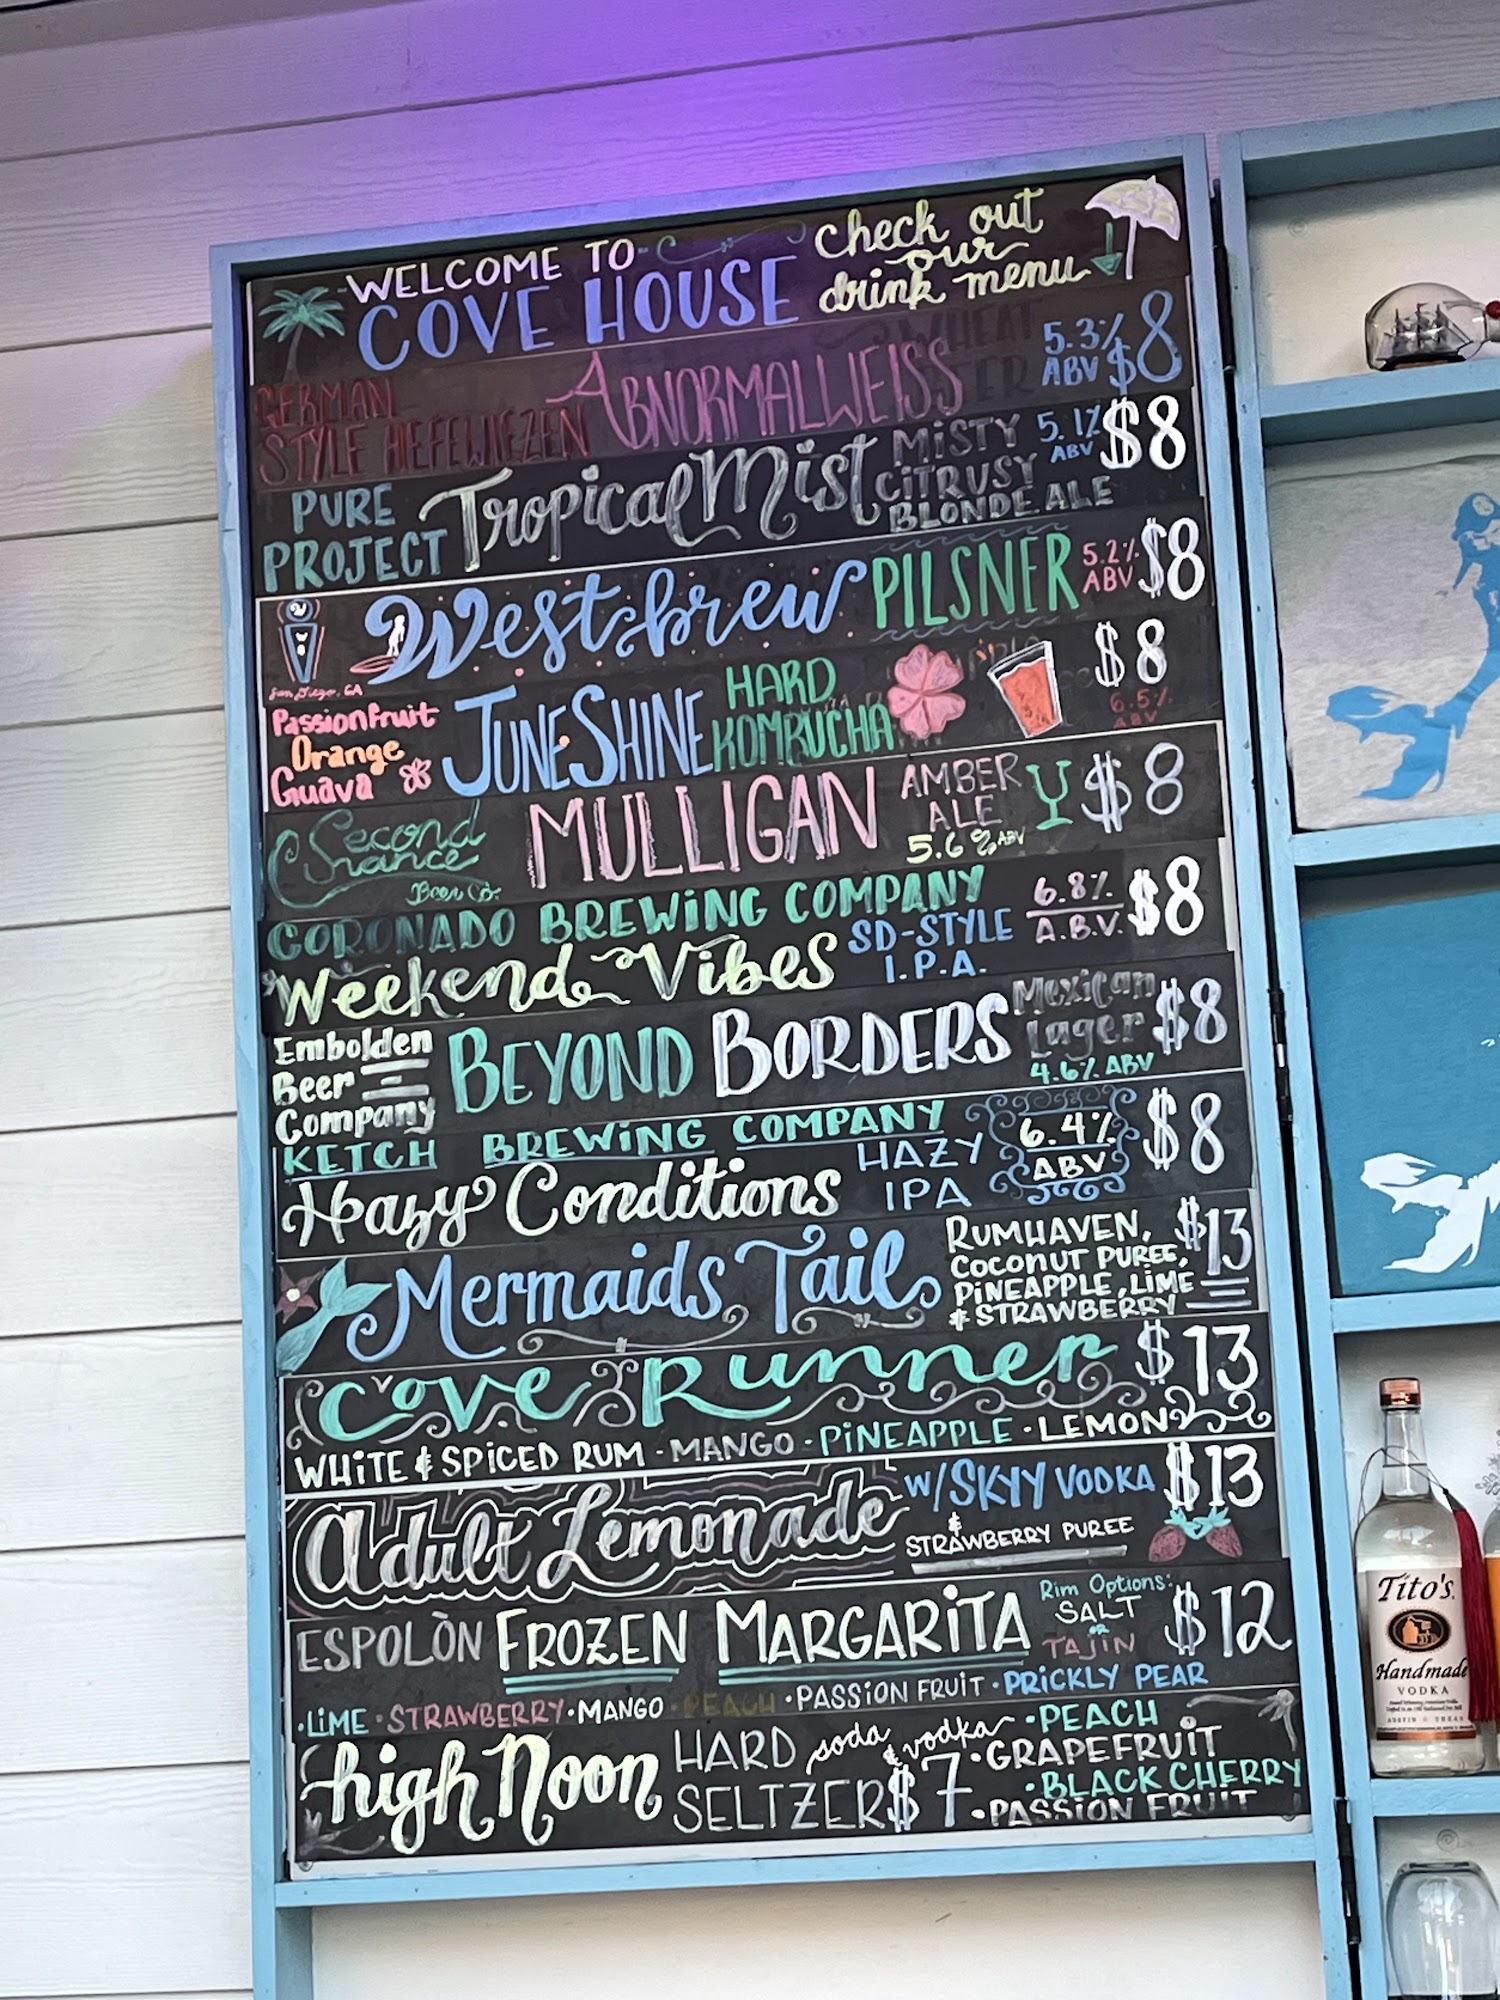 WELCOME TO
COVE HOUSE
check out
our
drink menu
GERMAN
STYLE HEFEWIEZEN
ABNORMALWEISS
5.3%
ABV
$8
PURE
PROJECT
Tropical Mist
MISTY
CITRUSY
BLONDE ALE
5.1%
ABV
$8
San Diego, CA
Westbrew
PILSNER
5.2%
ABV
$8
Passionfruit
Orange
Guava
JUNESHINE
HARD
KOMBUCHA
$8
6.5%
ABV
Second
Chance
Beer Co.
MULLIGAN
AMBER
ALE
5.6% ABV
$8
CORONADO BREWING COMPANY
Weekend Vibes
SD-STYLE
I.P.A.
6.8%
A.B.V.
$8
Embolden
Beer
Company
BEYOND BORDERS
Mexican
Lager
4.6% ABV
$8
KETCH BREWING COMPANY
Hazy Conditions
HAZY
IPA
6.4%
ABV
$8
Mermaids Tail
RUMHAVEN,
COCONUT PUREE,
PINEAPPLE, LIME
& STRAWBERRY
$13
Cove Runner
$13
WHITE & SPICED RUM · MANGO · PINEAPPLE · LEMON
Adult Lemonade
w/ SKYY VODKA
&
STRAWBERRY PUREE
$13
ESPOLÒN FROZEN MARGARITA
Rim Options:
SALT
OR
TAJIN
$12
·LIME ·STRAWBERRY ·MANGO ·PEACH ·PASSION FRUIT ·PRICKLY PEAR
high Noon
HARD
SELTZER
soda
& vodka
$7
·PEACH
·GRAPEFRUIT
·BLACK CHERRY
·PASSION FRUIT
Tito's
Handmade
VODKA